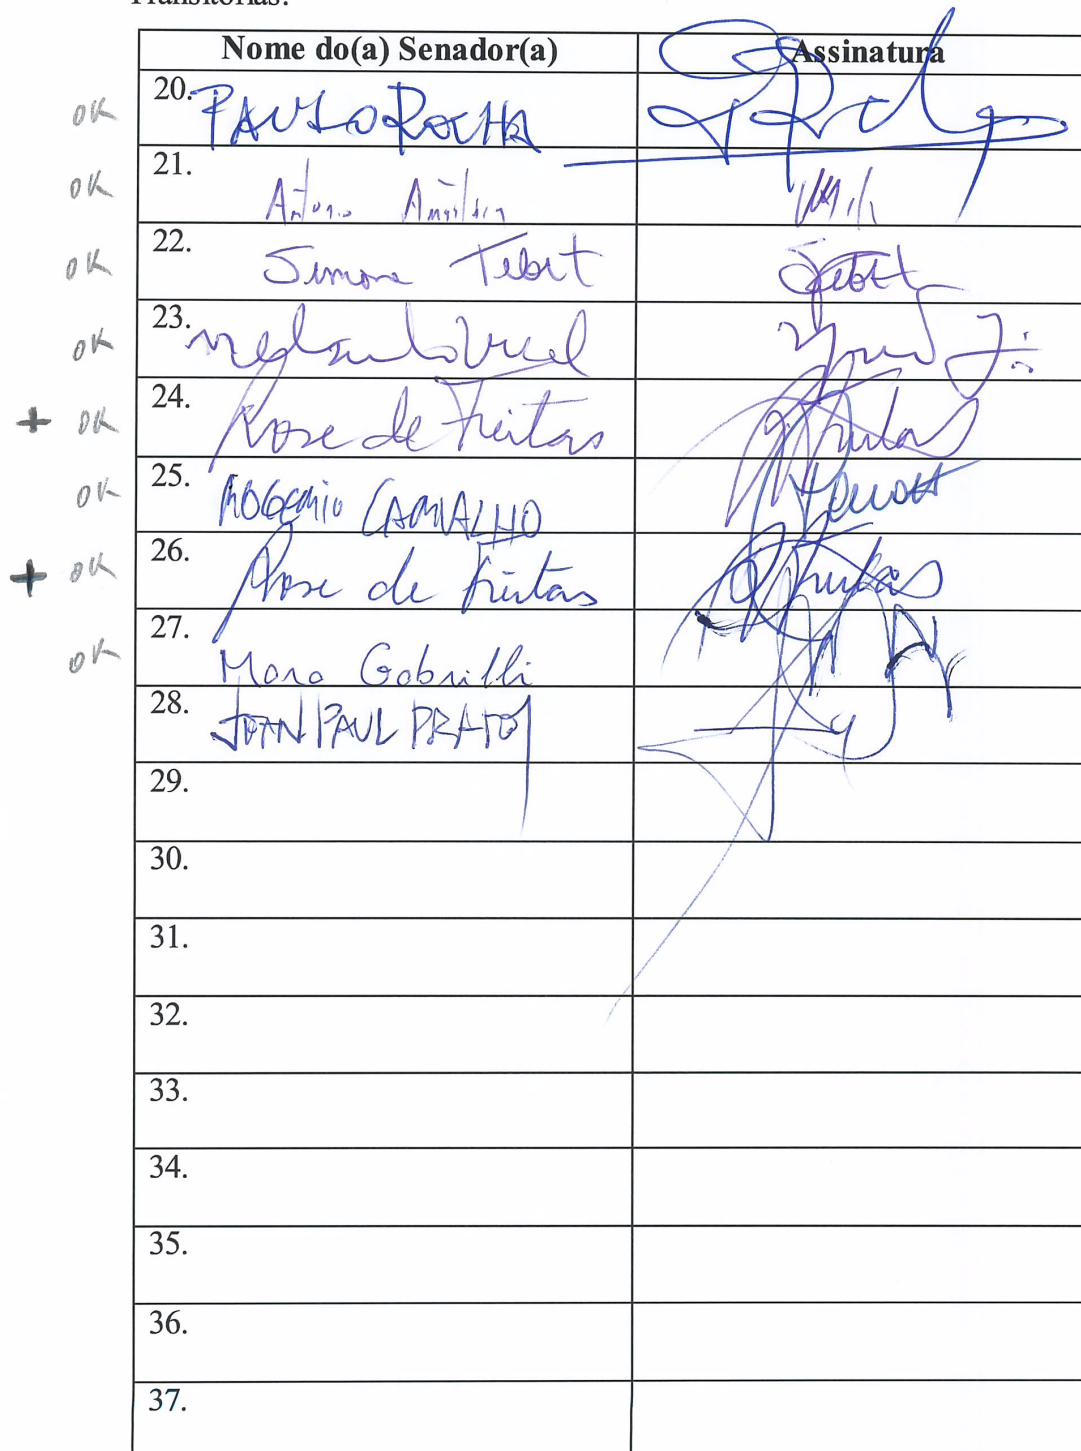 Transitórias.
Nome do(a) Senador(a) Assinatura
OK 20. PAULO ROCHA
OK 21. Antonio
OK 22. Simone Tebet Tebet
OK 23.
+ OK 24. Rose de Freitas
OK 25. ROGERIO CARVALHO
+ OK 26. Rose de Freitas
OK 27. Mara Gabrilli
28. JEAN PAUL PRATES
29.
30.
31.
32.
33.
34.
35.
36.
37.